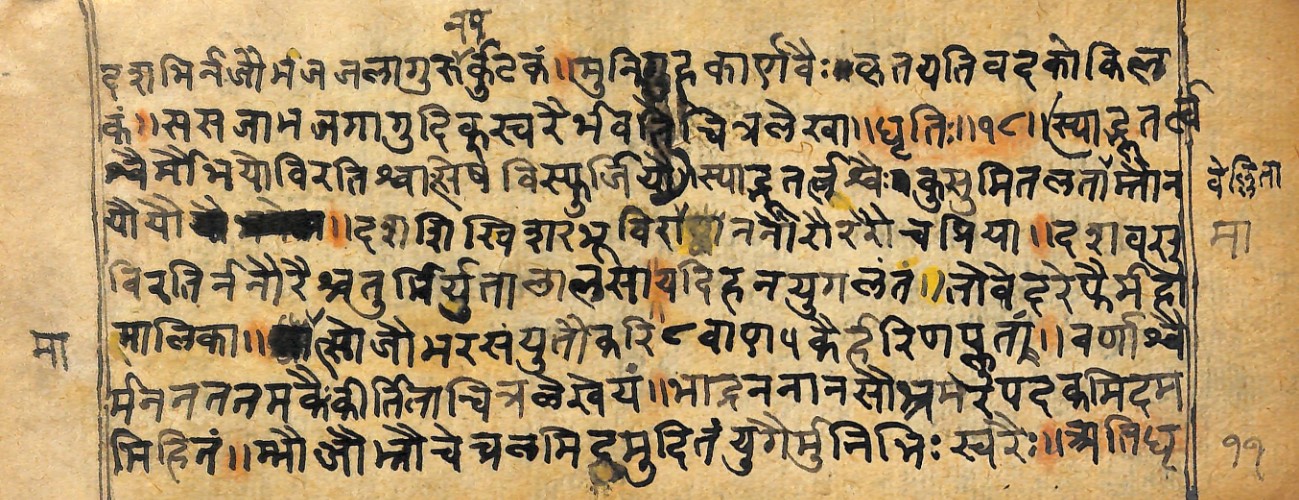 न५
दशभिर्नजौ भजजला गुरु सर्कुटकं ॥ मुनिगुहकार्णवैः कृतयतिवद कोकिल
कं ॥ ससजा भजगा गु दिक्स्वरैर्भवति चित्रलेखा ॥ धृतिः ॥ १८ ॥ स्याद्भूतर्त्व
श्वै मौभियौ विरति श्चाहोर्षे विस्फुर्जियौ ॥ स्याद्भूतर्त्वश्वैः कुसुमितलता म्तौ न
वेल्लिता
यौ यौ ॥ दशशिखिशरभूविरा ननौ रौ ररौ चप्रिया ॥ दशवसु
मा
विरतिर्ननौ रैश्चतुर्भिर्युता लालसा यदिह नयुगलंतं ॥ तौ वेदरेफैर्महा
मालिका ॥ त्सो जौ भरसंयुतौ करि ८ वाण ५ कैर्हरिणप्लुतां ॥ वर्णाश्वै
मा
र्मननततनमकैः कीर्तिता चित्रलेखेयं ॥ भाद्गनना नसौ भ्रमरपदकमिदम
भिहितं ॥ म्भौ जौ म्रौ चेच्चलमिदमुदितं युगैर्मुनिभिः स्वरैः ॥ अतिधृ
११